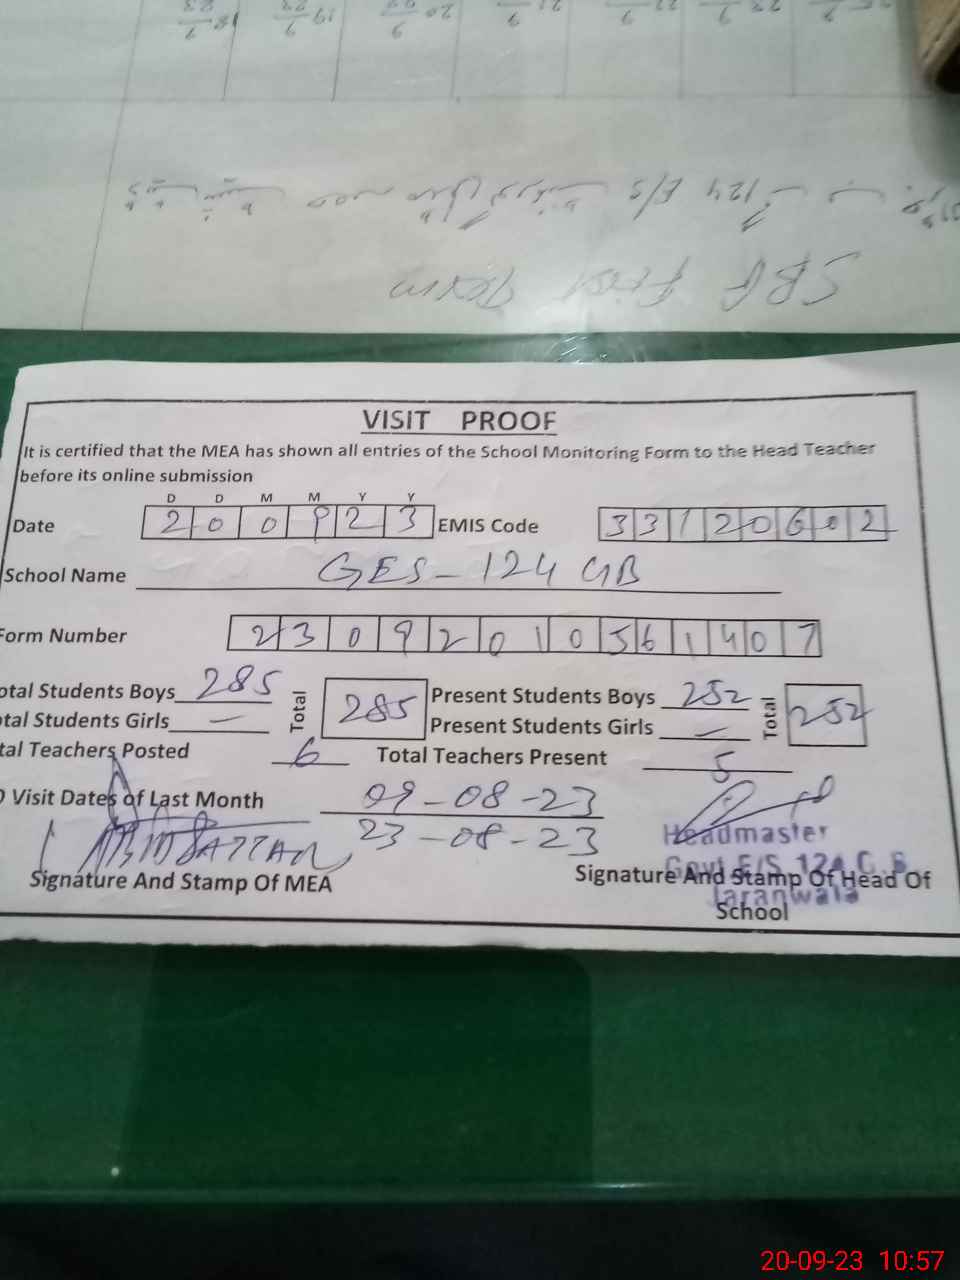 SBA First Term
VISIT PROOF
It is certified that the MEA has shown all entries of the School Monitoring Form to the Head Teacher
before its online submission
D D M M Y Y
Date 2 0 0 9 2 3 EMIS Code 3 3 1 2 0 6 0 2
School Name GES-124 GB
Form Number 2 3 0 9 2 0 1 0 5 6 1 4 0 7
otal Students Boys 285 Total 285 Present Students Boys 252 Total 252
otal Students Girls — Present Students Girls —
tal Teachers Posted 6 Total Teachers Present 5
O Visit Dates of Last Month 09-08-23
23-08-23
Headmaster
Govt E/S 124 G.B
Jaranwala
Signature And Stamp Of MEA
Signature And Stamp Of Head Of
School
20-09-23 10:57